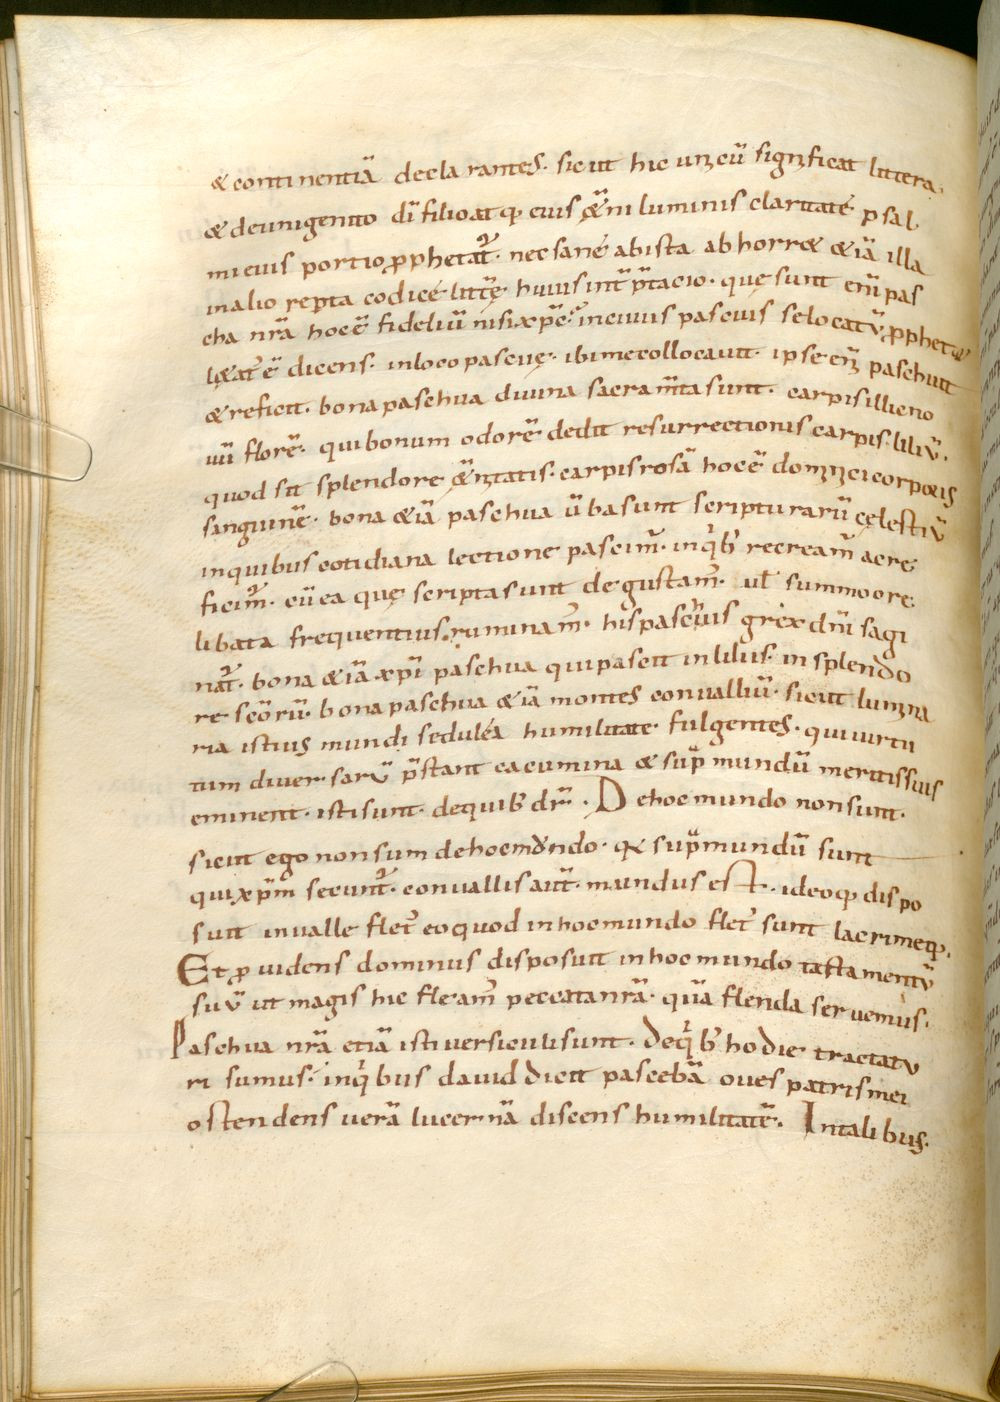 & continentiā declarantes. sicut hic unicū significat littera.
& de unigenito dī filio atq; eius &̄ni luminis claritatē psal
mi eius portio ꝓphetat̄. nec sané ab ista abhorr& &iā illa
in alio reperta codicé littę̄ huius int̄pr̄tacio. quę sunt enī pas
cha nr̄a hoc ē̄ fideliū nisi xp̄c. in cuius pascuis se locatū ꝓphet&
l&at' ē dicens. in loco pascuę. ibi me collocavit. ipse enī paschit
& reficit. bona paschua divina sacram̄ta sunt. carpis illic no
uū florē. qui bonum odorē dedit resurrectionis carpis liliū.
quod sit splendore &̄nitatis. carpis rosā hoc ē dominici corporis
sanguinē. bona &iā paschua ūba sunt scripturarū cęlestiū
in quibus cotidiana lectione pascim̄. in qͥb; recream̄ ac re
ficim̄. cū ea quę scripta sunt degustam̄. ul̄ summo ore
libata frequentius ruminam̄. his pascuis gréx dn̄i sagi
nat̄. bona &iā xp̄i paschua qui pascit in liliis. in splendo
re scōrū. bona paschua &iā montes convalliū. sicut lumina
ria istius mundi sedulęa humilitate fulgentes. qui virtu
tum diversarū p̄stant cacumina & sup̄ mundū meritis suis
eminent. isti sunt de quib; dr̄. De hoc mundo non sunt.
sicut ego non sum de hoc mundo. q& sup̄ mundū sunt
qui xp̄m secunt̄. convallis aut̄ mundus est. ideoq; dispo
suit in valle flet' eo quod in hoc mundo flet' sunt lacrimeq;.
Et ꝓvidens dominus disposuit in hoc mundo testamentū
suū ut magis hic fleam̄ peccata nr̄a. quā flenda servemus.
Paschua nr̄a etiā isti versiculi sunt. de qͥb; hodie tractatu
ri sumus. in qͥbus david dicit pascebā oves patris mei
ostendens verā lucernā discens humilitatē. In talibus.